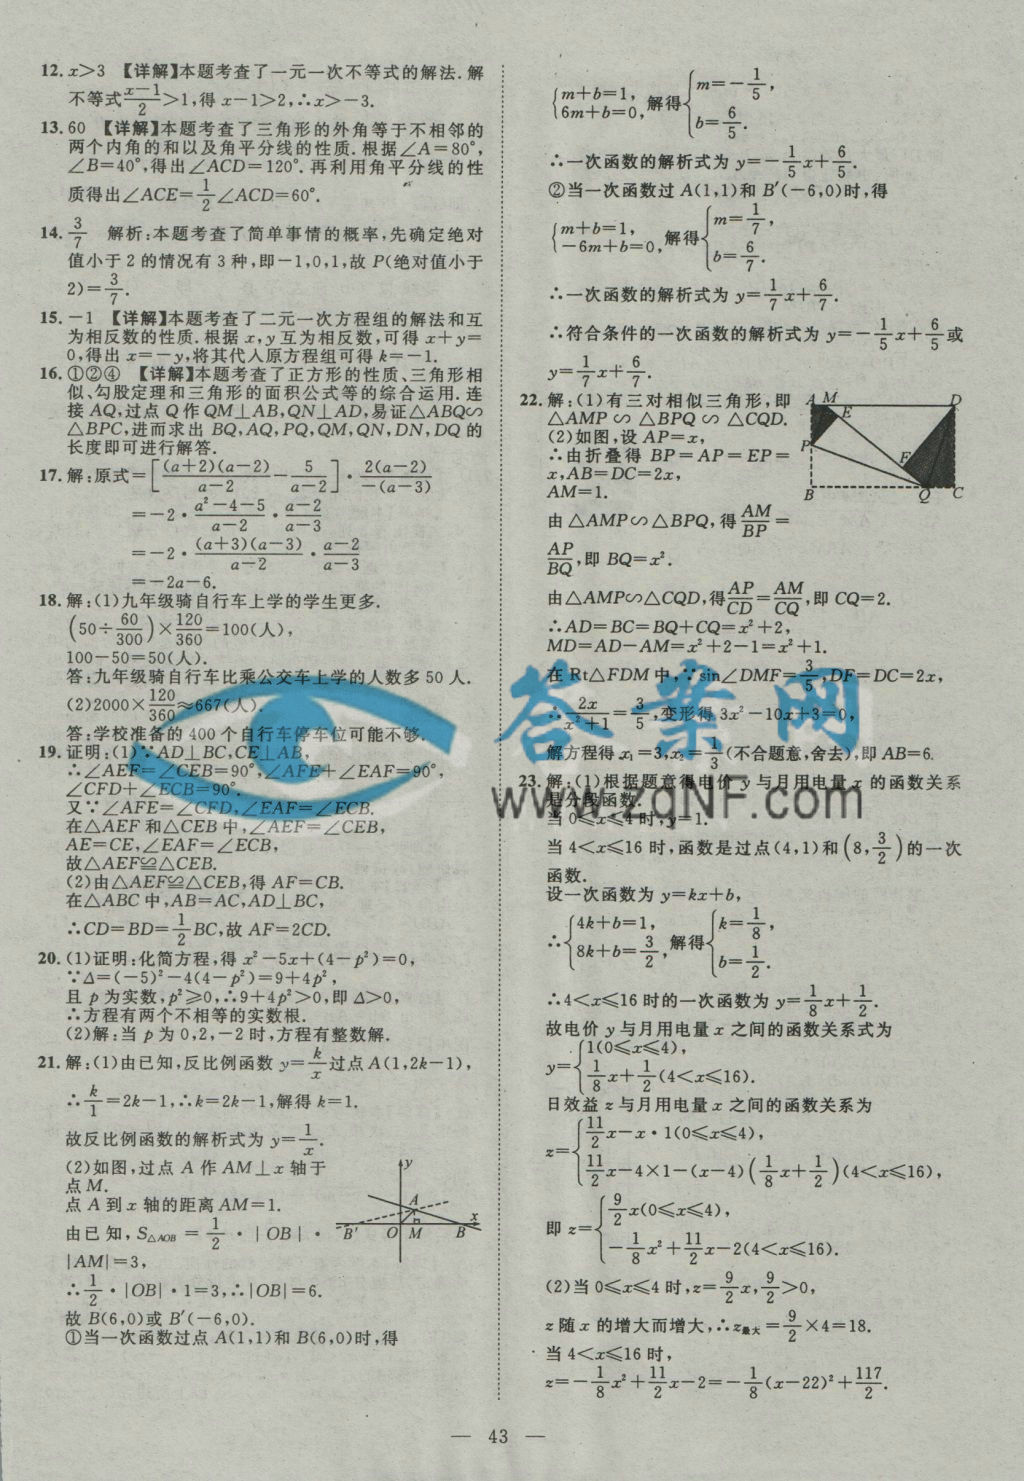 12. x>3 【详解】本题考查了一元一次不等式的解法.解
不等式(x-1)/2>1,得 x-1>2,∴x>-3.
13. 60 【详解】本题考查了三角形的外角等于不相邻的
两个内角的和以及角平分线的性质.根据∠A=80°,
∠B=40°,得出∠ACD=120°.再利用角平分线的性
质得出∠ACE=1/2∠ACD=60°.
14. 3/7 解析:本题考查了简单事情的概率,先确定绝对
值小于2的情况有3种,即-1,0,1,故P(绝对值小于
2)=3/7.
15. -1 【详解】本题考查了二元一次方程组的解法和互
为相反数的性质.根据x,y互为相反数,可得x+y=
0,得出x=-y,将其代人原方程组可得k=-1.
16. ①②④ 【详解】本题考查了正方形的性质、三角形相
似、勾股定理和三角形的面积公式等的综合运用.连
接AQ,过点Q作QM⊥AB,QN⊥AD,易证△ABQ∽
△BPC,进而求出BQ,AQ,PQ,QM,QN,DN,DQ的
长度即可进行解答.
17. 解:原式=[(a+2)(a-2)/(a-2)-5/(a-2)]·2(a-2)/-(a-3)
=-2·(a²-4-5)/(a-2)·(a-2)/(a-3)
=-2·(a+3)(a-3)/(a-2)·(a-2)/(a-3)
=-2a-6.
18. 解:(1)九年级骑自行车上学的学生更多.
(50÷60/300)×120/360=100(人),
100-50=50(人).
答:九年级骑自行车比乘公交车上学的人数多50人.
(2)2000×120/360≈667(人).
答:学校准备的400个自行车停车位可能不够.
19. 证明:(1)∵AD⊥BC,CE⊥AB,
∴∠AEF=∠CEB=90°,∠AFE+∠EAF=90°,
∠CFD+∠ECB=90°.
又∵∠AFE=∠CFD,∠EAF=∠ECB.
在△AEF和△CEB中,∠AEF=∠CEB,
AE=CE,∠EAF=∠ECB,
故△AEF≌△CEB.
(2)由△AEF≌△CEB,得AF=CB.
在△ABC中,AB=AC,AD⊥BC,
∴CD=BD=1/2BC,故AF=2CD.
20. (1)证明:化简方程,得x²-5x+(4-p²)=0,
∵Δ=(-5)²-4(4-p²)=9+4p²,
且p为实数,p²≥0,∴9+4p²>0,即Δ>0,
∴方程有两个不相等的实数根.
(2)解:当p为0,2,-2时,方程有整数解.
21. 解:(1)由已知,反比例函数y=k/x过点A(1,2k-1),
∴k/1=2k-1,∴k=2k-1,解得k=1.
故反比例函数的解析式为y=1/x.
(2)如图,过点A作AM⊥x轴于
点M.
点A到x轴的距离AM=1.
由已知,S△AOB=1/2·|OB|·
|AM|=3,
∴1/2·|OB|·1=3,∴|OB|=6.
故B(6,0)或B′(-6,0).
①当一次函数过点A(1,1)和B(6,0)时,得
y
A
B′ O M B x
{m+b=1, 6m+b=0, 解得{m=-1/5, b=6/5.
∴一次函数的解析式为y=-1/5x+6/5.
②当一次函数过A(1,1)和B′(-6,0)时,得
{m+b=1, -6m+b=0, 解得{m=1/7, b=6/7.
∴一次函数的解析式为y=1/7x+6/7.
∴符合条件的一次函数的解析式为y=-1/5x+6/5或
y=1/7x+6/7.
22. 解:(1)有三对相似三角形,即
△AMP∽△BPQ∽△CQD.
(2)如图,设AP=x,
∴由折叠得BP=AP=EP=
x,AB=DC=2x,
AM=1.
由△AMP∽△BPQ,得AM/BP=
AP/BQ,即BQ=x².
由△AMP∽△CQD,得AP/CD=AM/CQ,即CQ=2.
∴AD=BC=BQ+CQ=x²+2,
MD=AD-AM=x²+2-1=x²+1.
在Rt△FDM中,∵sin∠DMF=3/5,DF=DC=2x,
∴2x/(x²+1)=3/5,变形得3x²-10x+3=0,
解方程得x₁=3,x₂=1/3(不合题意,舍去),即AB=6.
A M D
E
P F
B Q C
23. 解:(1)根据题意得电价y与月用电量x的函数关系
是分段函数.
当0≤x≤4时,y=1.
当4<x≤16时,函数是过点(4,1)和(8,3/2)的一次
函数.
设一次函数为y=kx+b,
∴{4k+b=1, 8k+b=3/2, 解得{k=1/8, b=1/2.
∴4<x≤16时的一次函数为y=1/8x+1/2.
故电价y与月用电量x之间的函数关系式为
y={1(0≤x≤4), 1/8x+1/2(4<x≤16).
日效益z与月用电量x之间的函数关系为
z={11/2x-x·1(0≤x≤4), 11/2x-4×1-(x-4)(1/8x+1/2)(4<x≤16),
即z={9/2x(0≤x≤4), -1/8x²+11/2x-2(4<x≤16).
(2)当0≤x≤4时,z=9/2x,9/2>0,
z随x的增大而增大,∴z最大=9/2×4=18.
当4<x≤16时,
z=-1/8x²+11/2x-2=-1/8(x-22)²+117/2.
答案网
www.zqNF.com
— 43 —